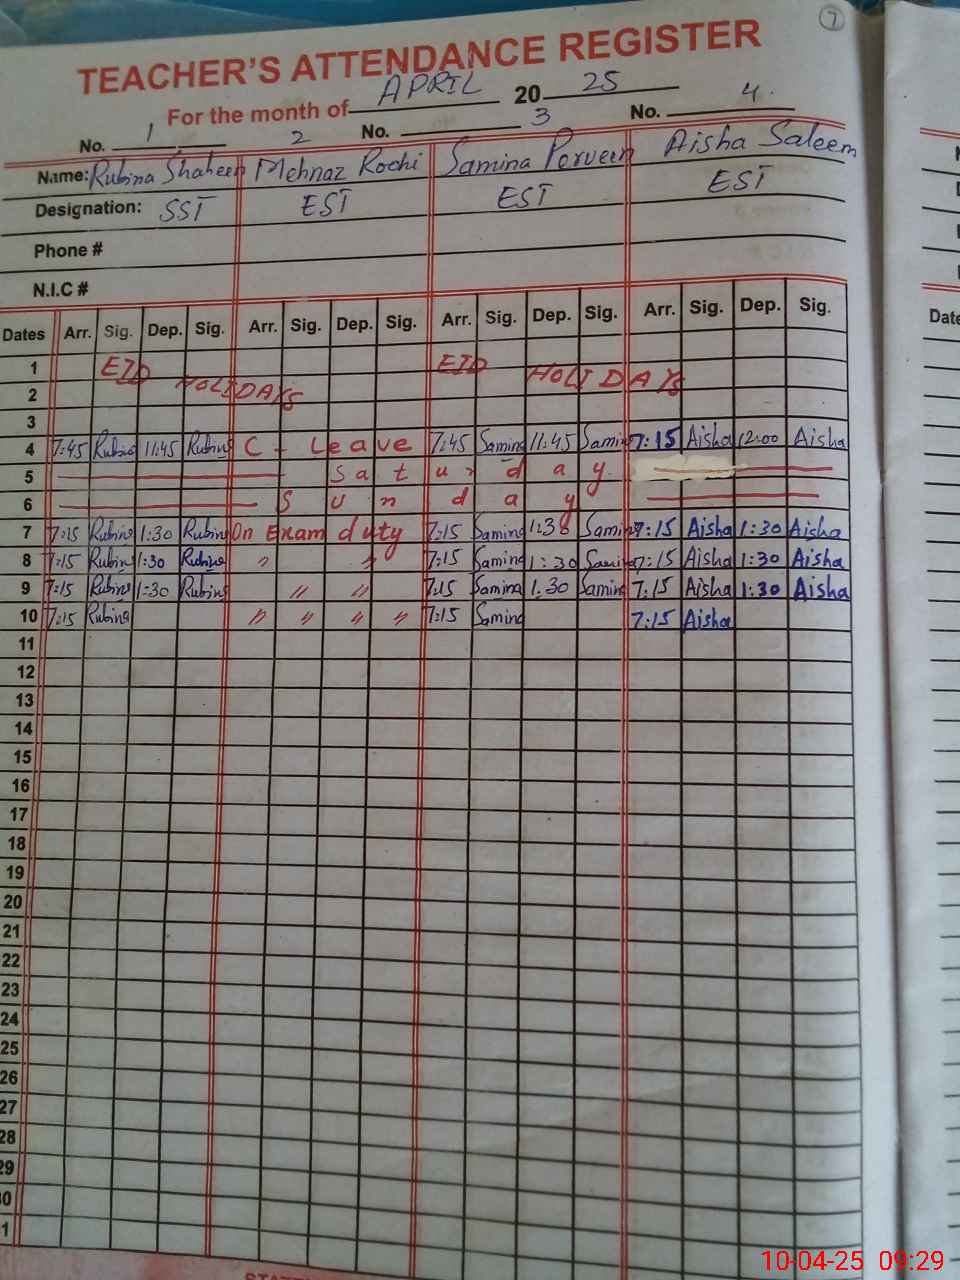 7
TEACHER'S ATTENDANCE REGISTER
For the month of APRIL 2025
No. 1 2 No. 3 No. 4.
Name: Rubina Shaheen Mehnaz Rochi Samina Perveen Aisha Saleem
Designation: SST EST EST EST
Phone #
N.I.C #
Dates Arr. Sig. Dep. Sig. Arr. Sig. Dep. Sig. Arr. Sig. Dep. Sig. Arr. Sig. Dep. Sig.
1 EID EID
2 HOLIDAYS HOLIDAYS
3
4 7:45 Rubina 11:45 Rubina C - Leave 7:45 Samina 11:45 Samina 7:15 Aisha 12:00 Aisha
5 Saturday
6 Sunday
7 7:15 Rubina 1:30 Rubina On Exam duty 7:15 Samina 1:30 Samina 7:15 Aisha 1:30 Aisha
8 7:15 Rubina 1:30 Rubina " " 7:15 Samina 1:30 Samina 7:15 Aisha 1:30 Aisha
9 7:15 Rubina 1:30 Rubina " " 7:15 Samina 1:30 Samina 7:15 Aisha 1:30 Aisha
10 7:15 Rubina " " " " 7:15 Samina 7:15 Aisha
11
12
13
14
15
16
17
18
19
20
21
22
23
24
25
26
27
28
29
30
31
Date
10-04-25 09:29